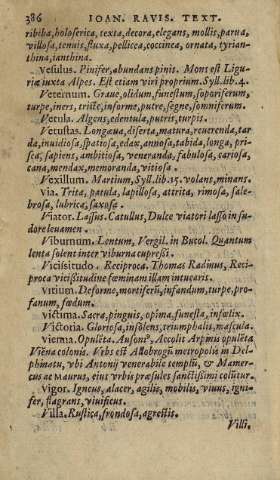 386 IOAN. RAVIS. TEXT.
ribiba, holoserica, texta, decora, elegans, mollis, parua,
villosa, tenuis, fluxa, pellicea, coccinea, ornata, tyrian-
thina, ianthina.
Vesulus. Pinifer, abundans pinis. Mons est Ligu-
riæ iuxta Alpes. Est etiam viri proprium. Syll. lib. 4.
Veternum. Graue, olidum, funestum, soporiferum,
turpe, iners, triste, informe, putre, segne, somniferum.
Vetula. Algens, edentula, putris, turpis.
Vetustas. Longæua, diserta, matura, reuerenda, tar
da, inuidiosa, spatiosa, edax, annosa, tabida, longa, pri-
sca, sapiens, ambitiosa, veneranda, fabulosa, cariosa,
cana, mendax, memoranda, vitiosa.
Vexillum. Martium, Syll. lib. 15. volans, minans.
Via. Trita, patula, lapillosa, attrita, rimosa, sale-
brosa, lubrica, saxosa.
Viator. Lassus. Catullus, Dulce viatori lasso in su-
dore leuamen.
Viburnum. Lentum, Vergil. in Bucol. Quantum
lenta solent inter viburna cupressi.
Vicissitudo. Reciproca. Thomas Radinus, Reci-
proca vicissitudine fœminam illam intucaris.
Vitium Deforme, mortiferũ, infandum, turpe, pro-
fanum, fœdum.
Victima. Sacra, pinguis, opima, funesta, infœlix.
Victoria. Gloriosa, insolens, triumphalis, mascula.
Vienna. Opulẽta. Auson', Accolit Arpinis opulẽta
Viẽna colonis. Vrbs est Allobrogũ metropolis in Del-
phinatu, vbi Antonij venerabile templũ, & Mamer-
cus ac Maurus, eius vrbis præsules sanctissimi colũtur.
Vigor. Igneus, alacer, agilis, mobilis, viuus, igni-
fer, flagrans, viuificus.
Villa. Rustica, frondosa, agrestis.
Villi.